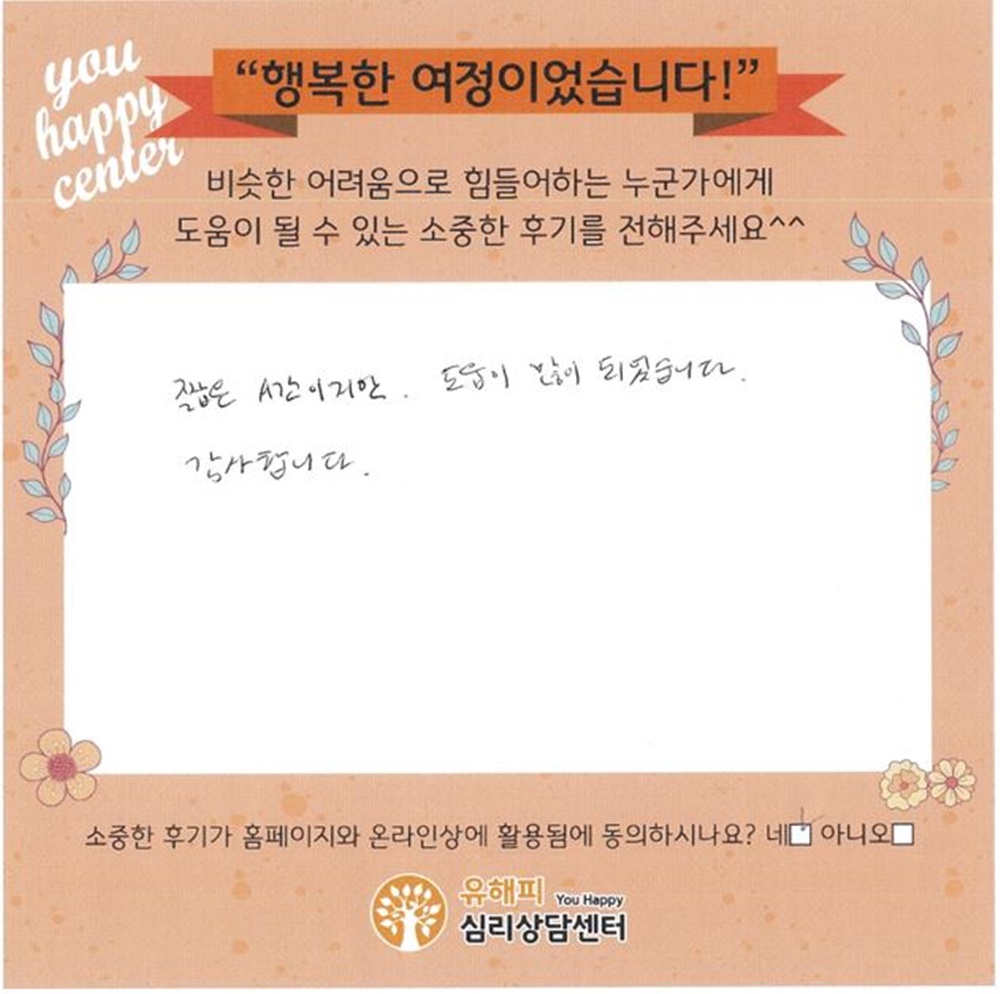 you
happy
center
“행복한 여정이었습니다!”
비슷한 어려움으로 힘들어하는 누군가에게
도움이 될 수 있는 소중한 후기를 전해주세요^^
짧은 시간이지만. 도움이 많이 되었습니다.
감사합니다.
소중한 후기가 홈페이지와 온라인상에 활용됨에 동의하시나요? 네 아니오
유해피 You Happy
심리상담센터